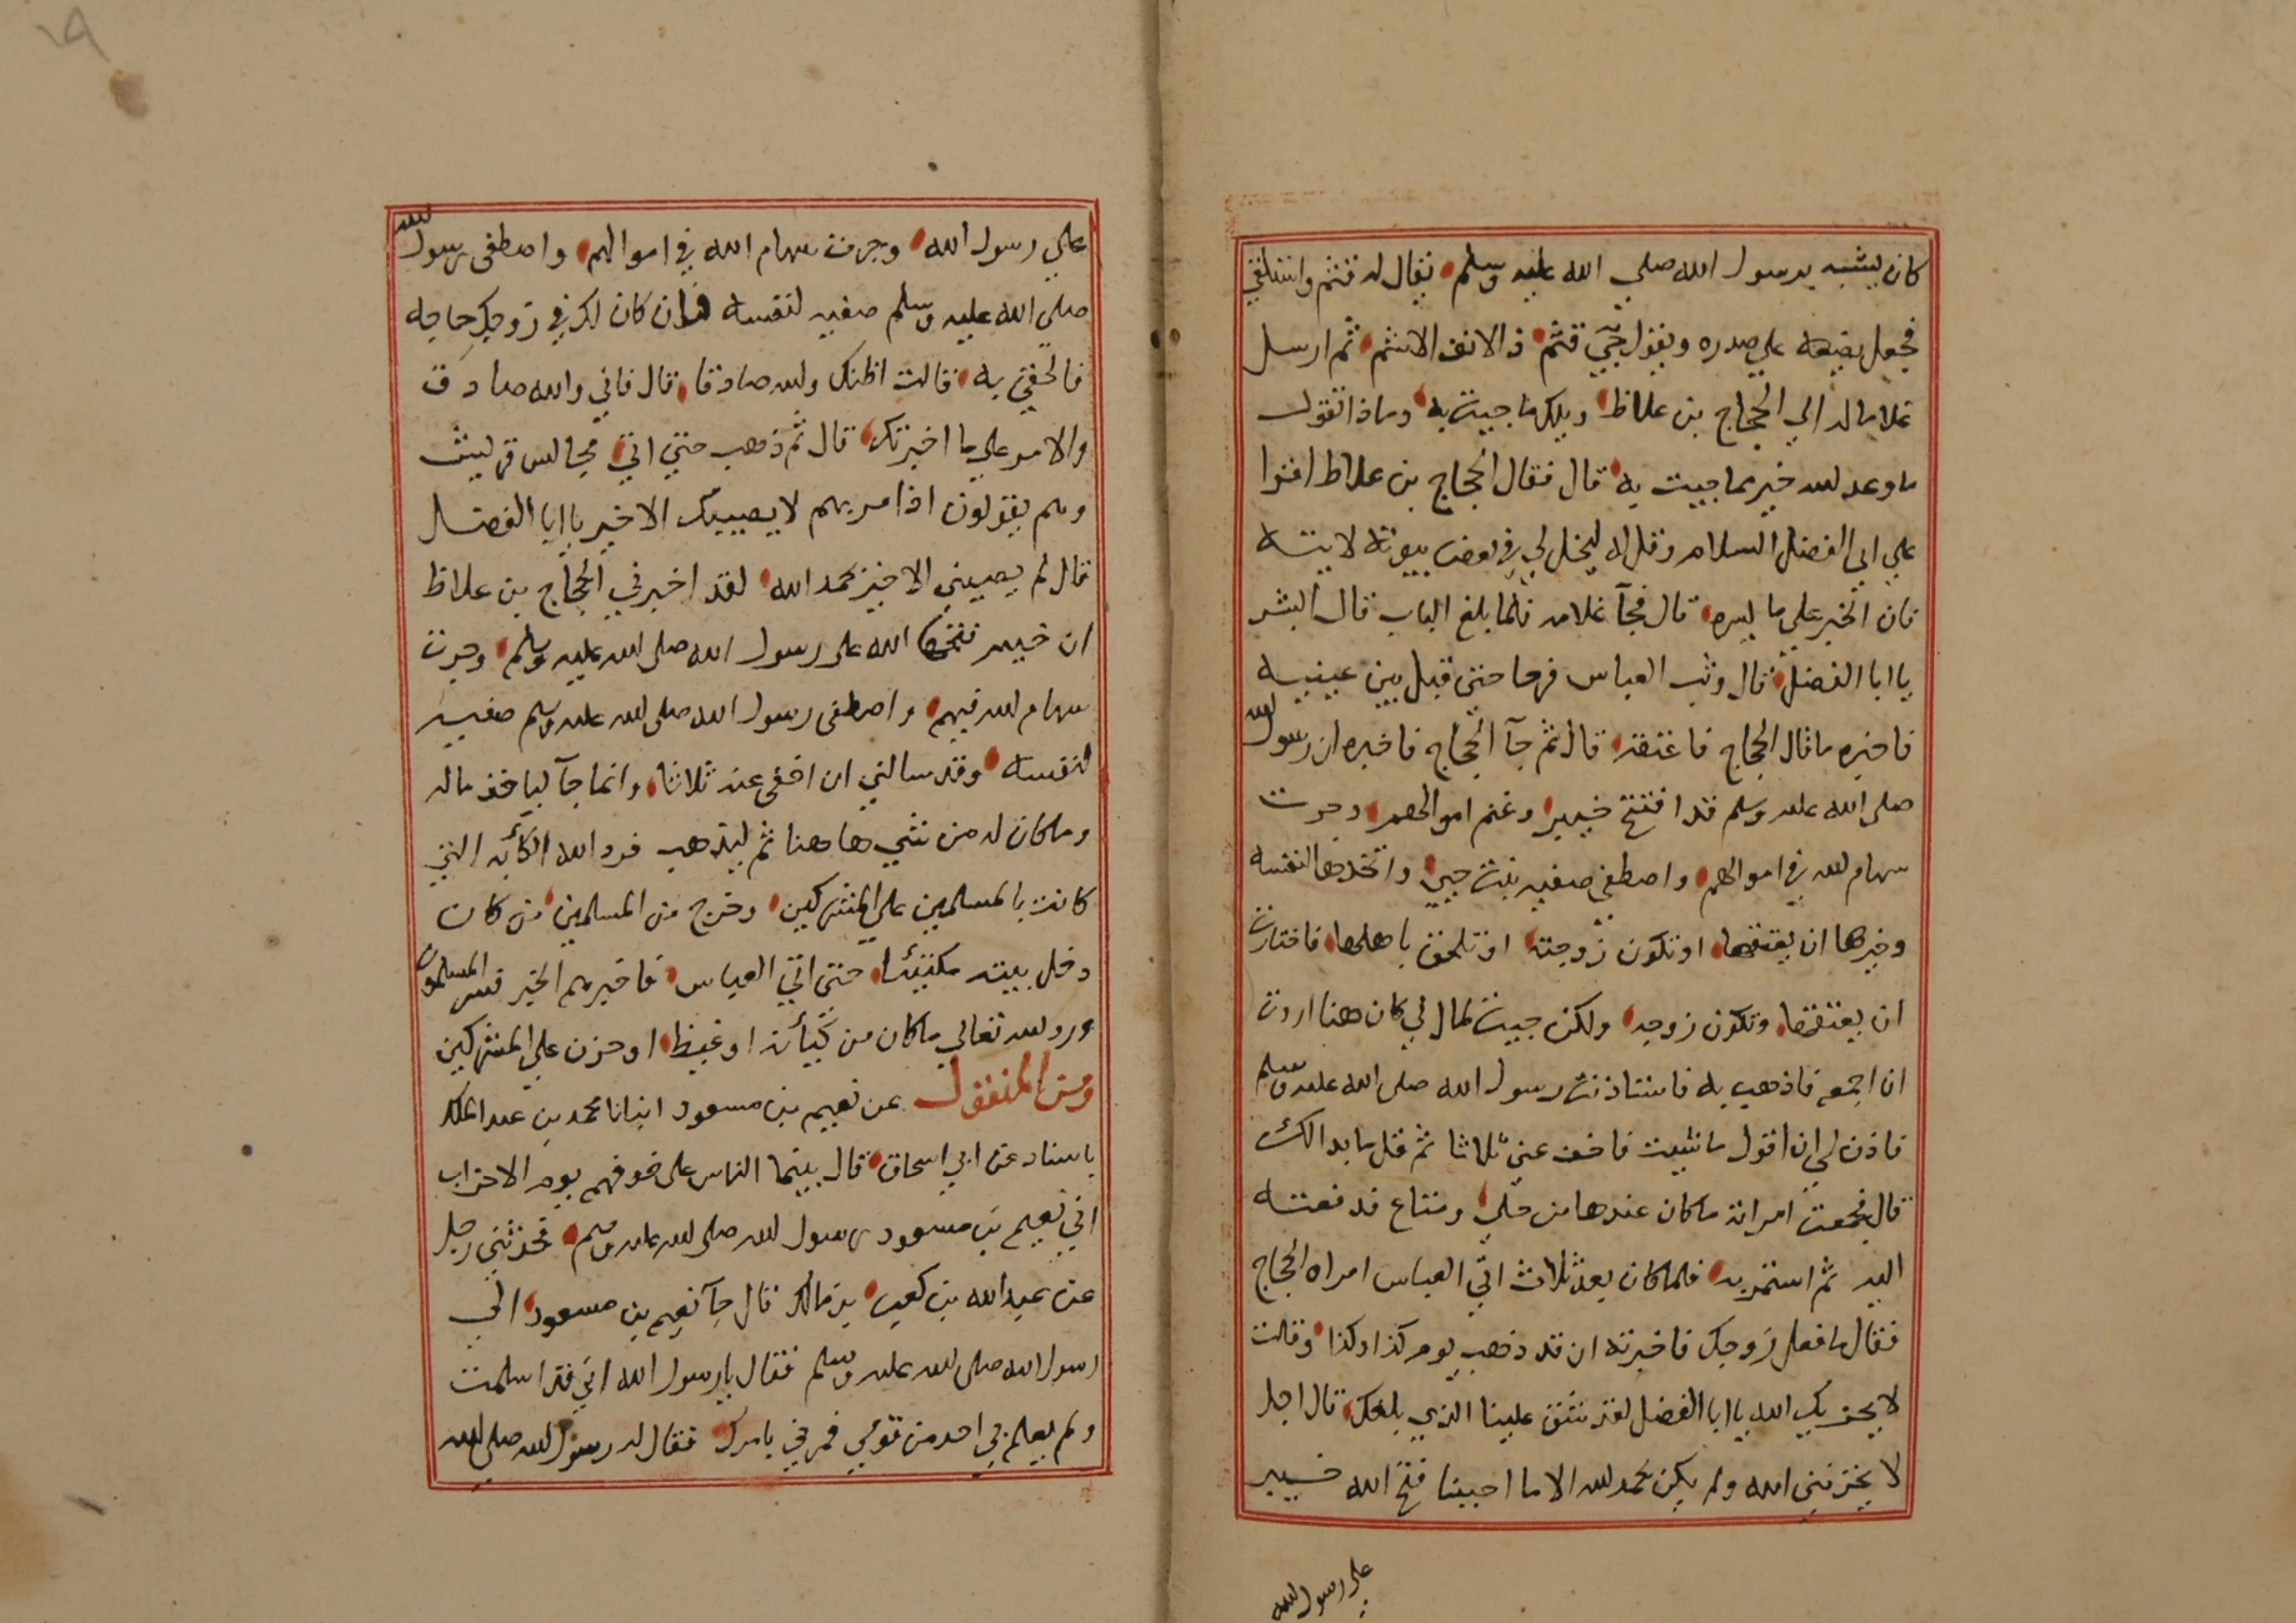 كان يشبه برسول الله صلي الله عليه وسلم يقال له قثم واستلقي
فجعل يضعه علي صدره ويقول حبي قثم ذ الانف الاشم ثم ارسل
غلاما له الي الحجاج بن علاط ويلك ما جيت به وماذا تقول
ما وعد لله خير مما جيت به قال فقال الحجاج بن علاط اقروا
علي ابي الفضل السلام وقل له ليخل لي في بعض بيوته لاتيه
فان الخبر علي ما يسره قال فجآ غلامه فلما بلغ الباب قال ابشر
يا ابا الفضل قال وثب العباس فرحا حتي قبل بين عينيه
فاخبره ما قال الحجاج فاعتقه قال ثم جآ الحجاج فاخبره ان رسول لله
صلي الله عليه وسلم قد افتتح خيبر وغنم اموالهم وجرت
سهام لله في اموالهم واصطفي صفيه بنت حيي واتخذها لنفسه
وخيرها ان يعتقها او تكون زوجته او تلحق باهلها فاختارت
ان يعتقها وتكون زوجه ولكن جيت لمال لي كان هنا اردت
ان اجمعه فاذهب به فاستاذنت رسول الله صلي الله عليه وسلم
فاذن لي ان اقول ما شيت فاخف عني ثلاثا ثم قل ما بدا لك
قال فجمعت امراته ما كان عندها من حلي ومتاع فدفعته
اليه ثم استمر به فلما كان بعد ثلاث اتي العباس امراه الحجاج
فقال ما فعل زوجك فاخبرته ان قد ذهب يوم كذا وكذا وقالت
لا يحزيك الله يا ابا الفضل لقد شق علينا الذي بلغك قال اجل
لا يحزنني الله ولم يكن بحمد لله الا ما احببنا فتح الله خيبر
علي رسول لله
علي رسول الله وجرت سهام الله في اموالهم واصطفي رسول لله
صلي الله عليه وسلم صفيه لنفسه فان كان لك في زوجك حاجه
فالحقي به قالت اظنك ولله صادقا قال فاني والله صادق
والامر علي ما اخبرتك قال ثم ذهب حتي اتي مجالس قريش
وهم يقولون اذا مر بهم لا يصيبك الا خير يا ابا الفضل
قال لم يصيبني الا خير بحمد الله لقد اخبرني الحجاج بن علاط
ان خيبر فتحها الله علي رسول الله صلي الله عليه وسلم وجرت
سهام لله فيهم واصطفي رسول الله صلي لله عليه وسلم صفيه
لنفسه وقد سالني ان اخفي عنه ثلاثا وانما جآ لياخذ ماله
وما كان له من شي هاهنا ثم ليذهب فرد الله الكأبه التي
كانت بالمسلمين علي المشركين وخرج من المسلمين من كان
دخل بيته مكتئبا حتي اتي العباس فاخبرهم الخبر فسر المسلمون
ورد لله تعالي ما كان من كيأبه او غيظ او حزن علي المشركين
ومن المنقول عن نعيم بن مسعود انبانا محمد بن عبد الملك
باسناد عن ابي اسحاق قال بينما الناس علي خوفهم يوم الاحزاب
اتي نعيم بن مسعود رسول لله صلي لله عليه وسلم فحدثني رجل
عن عبد الله بن كعب بن مالك قال جآ نعيم بن مسعود الي
رسول الله صلي لله عليه وسلم فقال يا رسول الله اني قد اسلمت
ولم يعلم بي احد من قومي فمرني بامرك فقال له رسول لله صلي لله